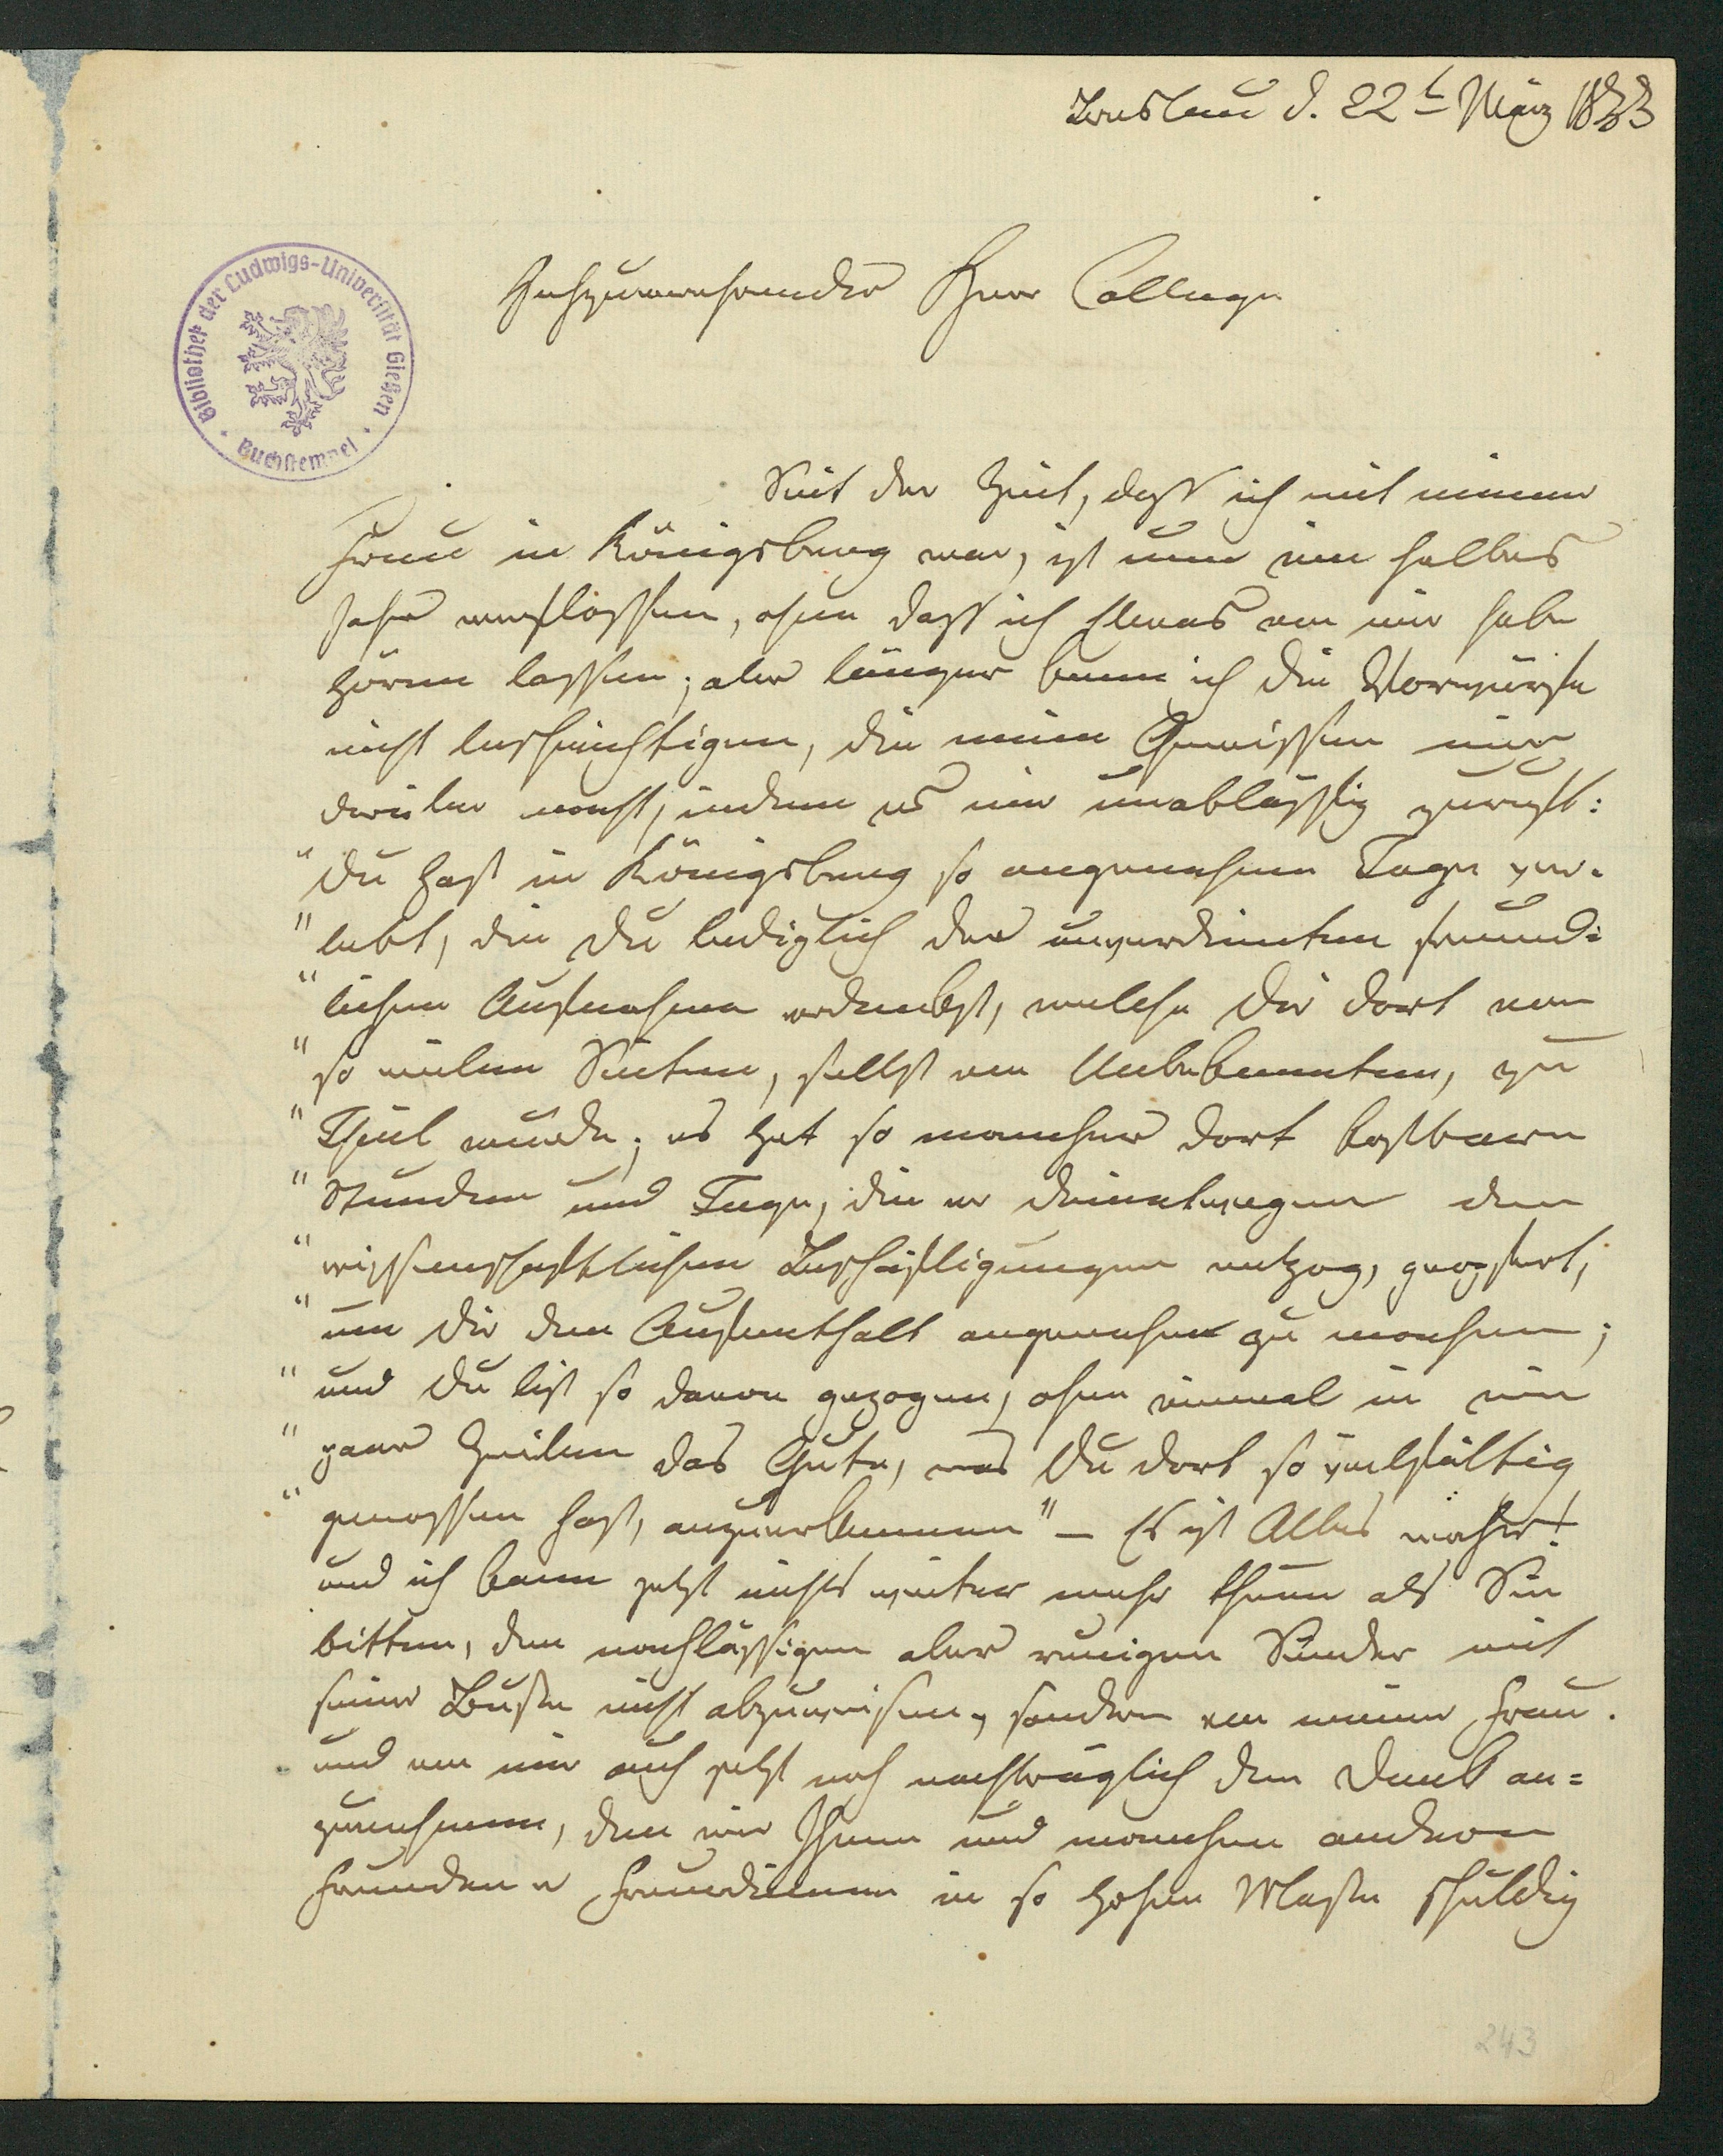 Breslau d. 22t März 1883
Bibliothek der Ludwigs-Universität Gießen
Buchstempel
Hochzuverehrender Herr College
Seit der Zeit, dass ich mit meiner
Frau in Königsberg war, ist nun ein halbes
Jahr verflossen, ohne dass ich Etwas von mir habe
hören lassen; aber länger kann ich die Vorwürfe
nicht beschwichtigen, die mein Gewissen mir
darüber macht, indem es mir unablässig zuruft:
"Du hast in Königsberg so angenehme Tage ver-
"lebt, die Du lediglich der unverdienten freund-
"lichen Aufnahme verdankst, welche Dir dort von
"so vielen Seiten, selbst von Unbekannten, zu
"Theil wurde; es hat so mancher dort kostbare
"Stunden und Tage, die er deinetwegen den
"wissenschaftlichen Beschäftigungen entzog, geopfert,
"um Dir den Aufenthalt angenehm zu machen;
"und Du bist so davon gezogen, ohne einmal in ein
"paar Zeilen das Gute, was Du dort so vielfältig
"genossen hast, anzuerkennen" – Es ist Alles wahr!
und ich kann jetzt nichts weiter mehr thun als Sie
bitten, den nachlässigen aber reuigen Sünder mit
seiner Busse nicht abzuweisen, sondern von meiner Frau
und von mir auch jetzt noch nachträglich den Dank an=
zunehmen, den wir Ihnen und manchen anderen
Freunden u Freundinnen in so hohem Masse schuldig
243